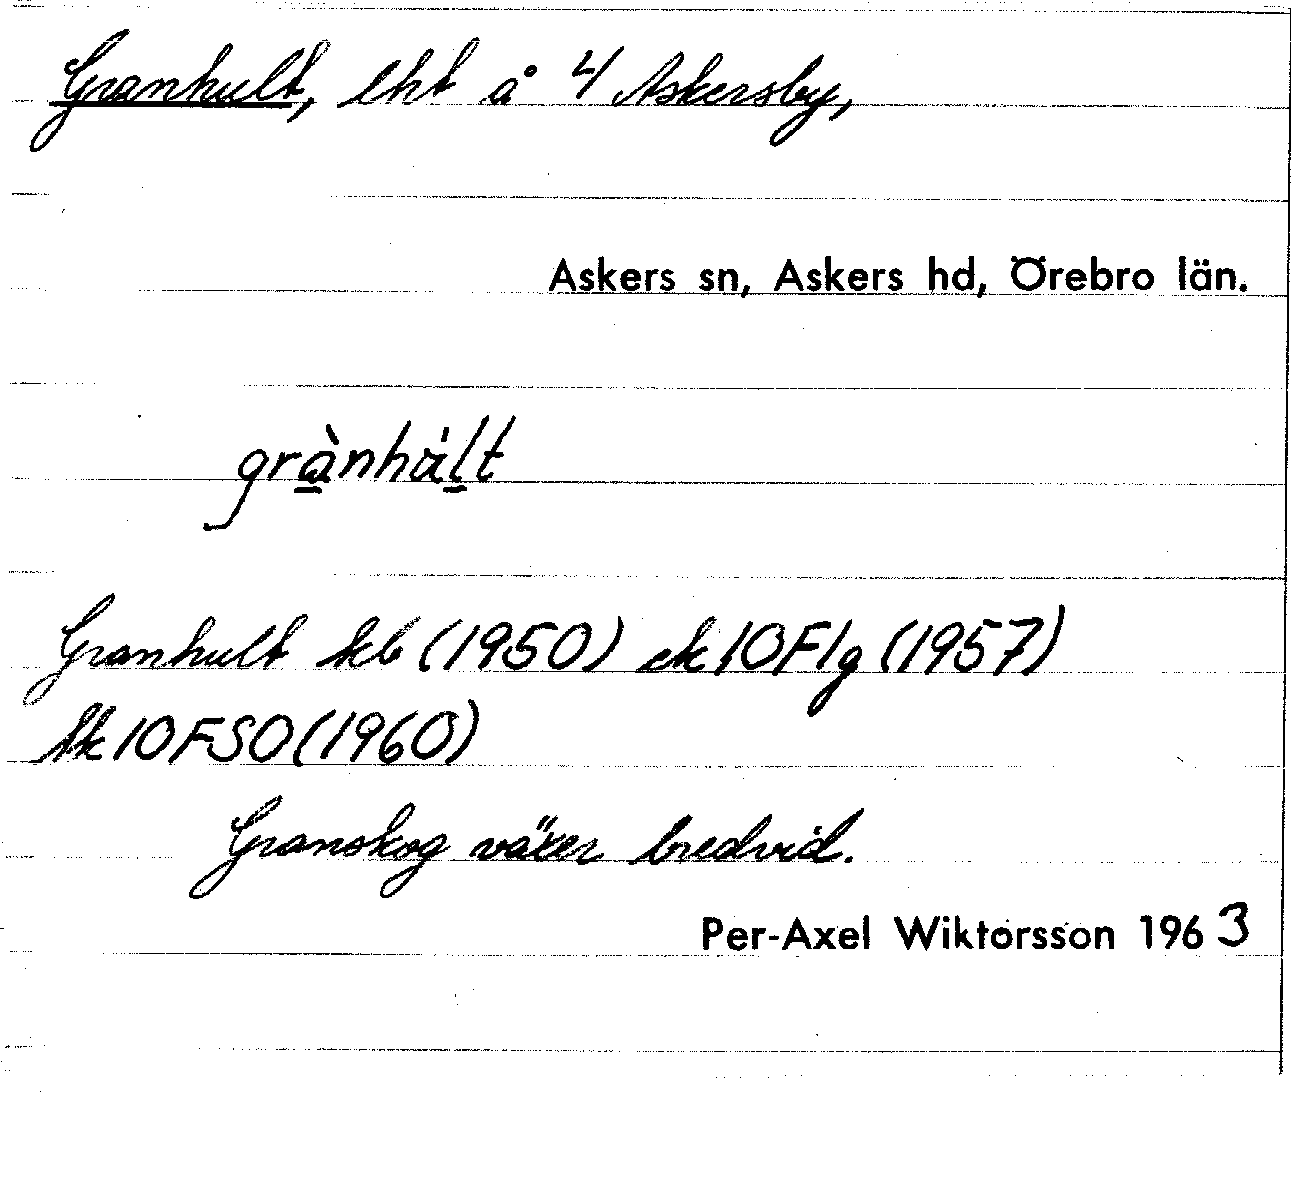 Granhult, lht å 4 Askersby,
Askers sn, Askers hd, Örebro län.
grànhált
Granhult kb (1950) ek 10F1g (1957)
tk 10FSO (1960)
Granskog växer bredvid.
Per-Axel Wiktorsson 1963